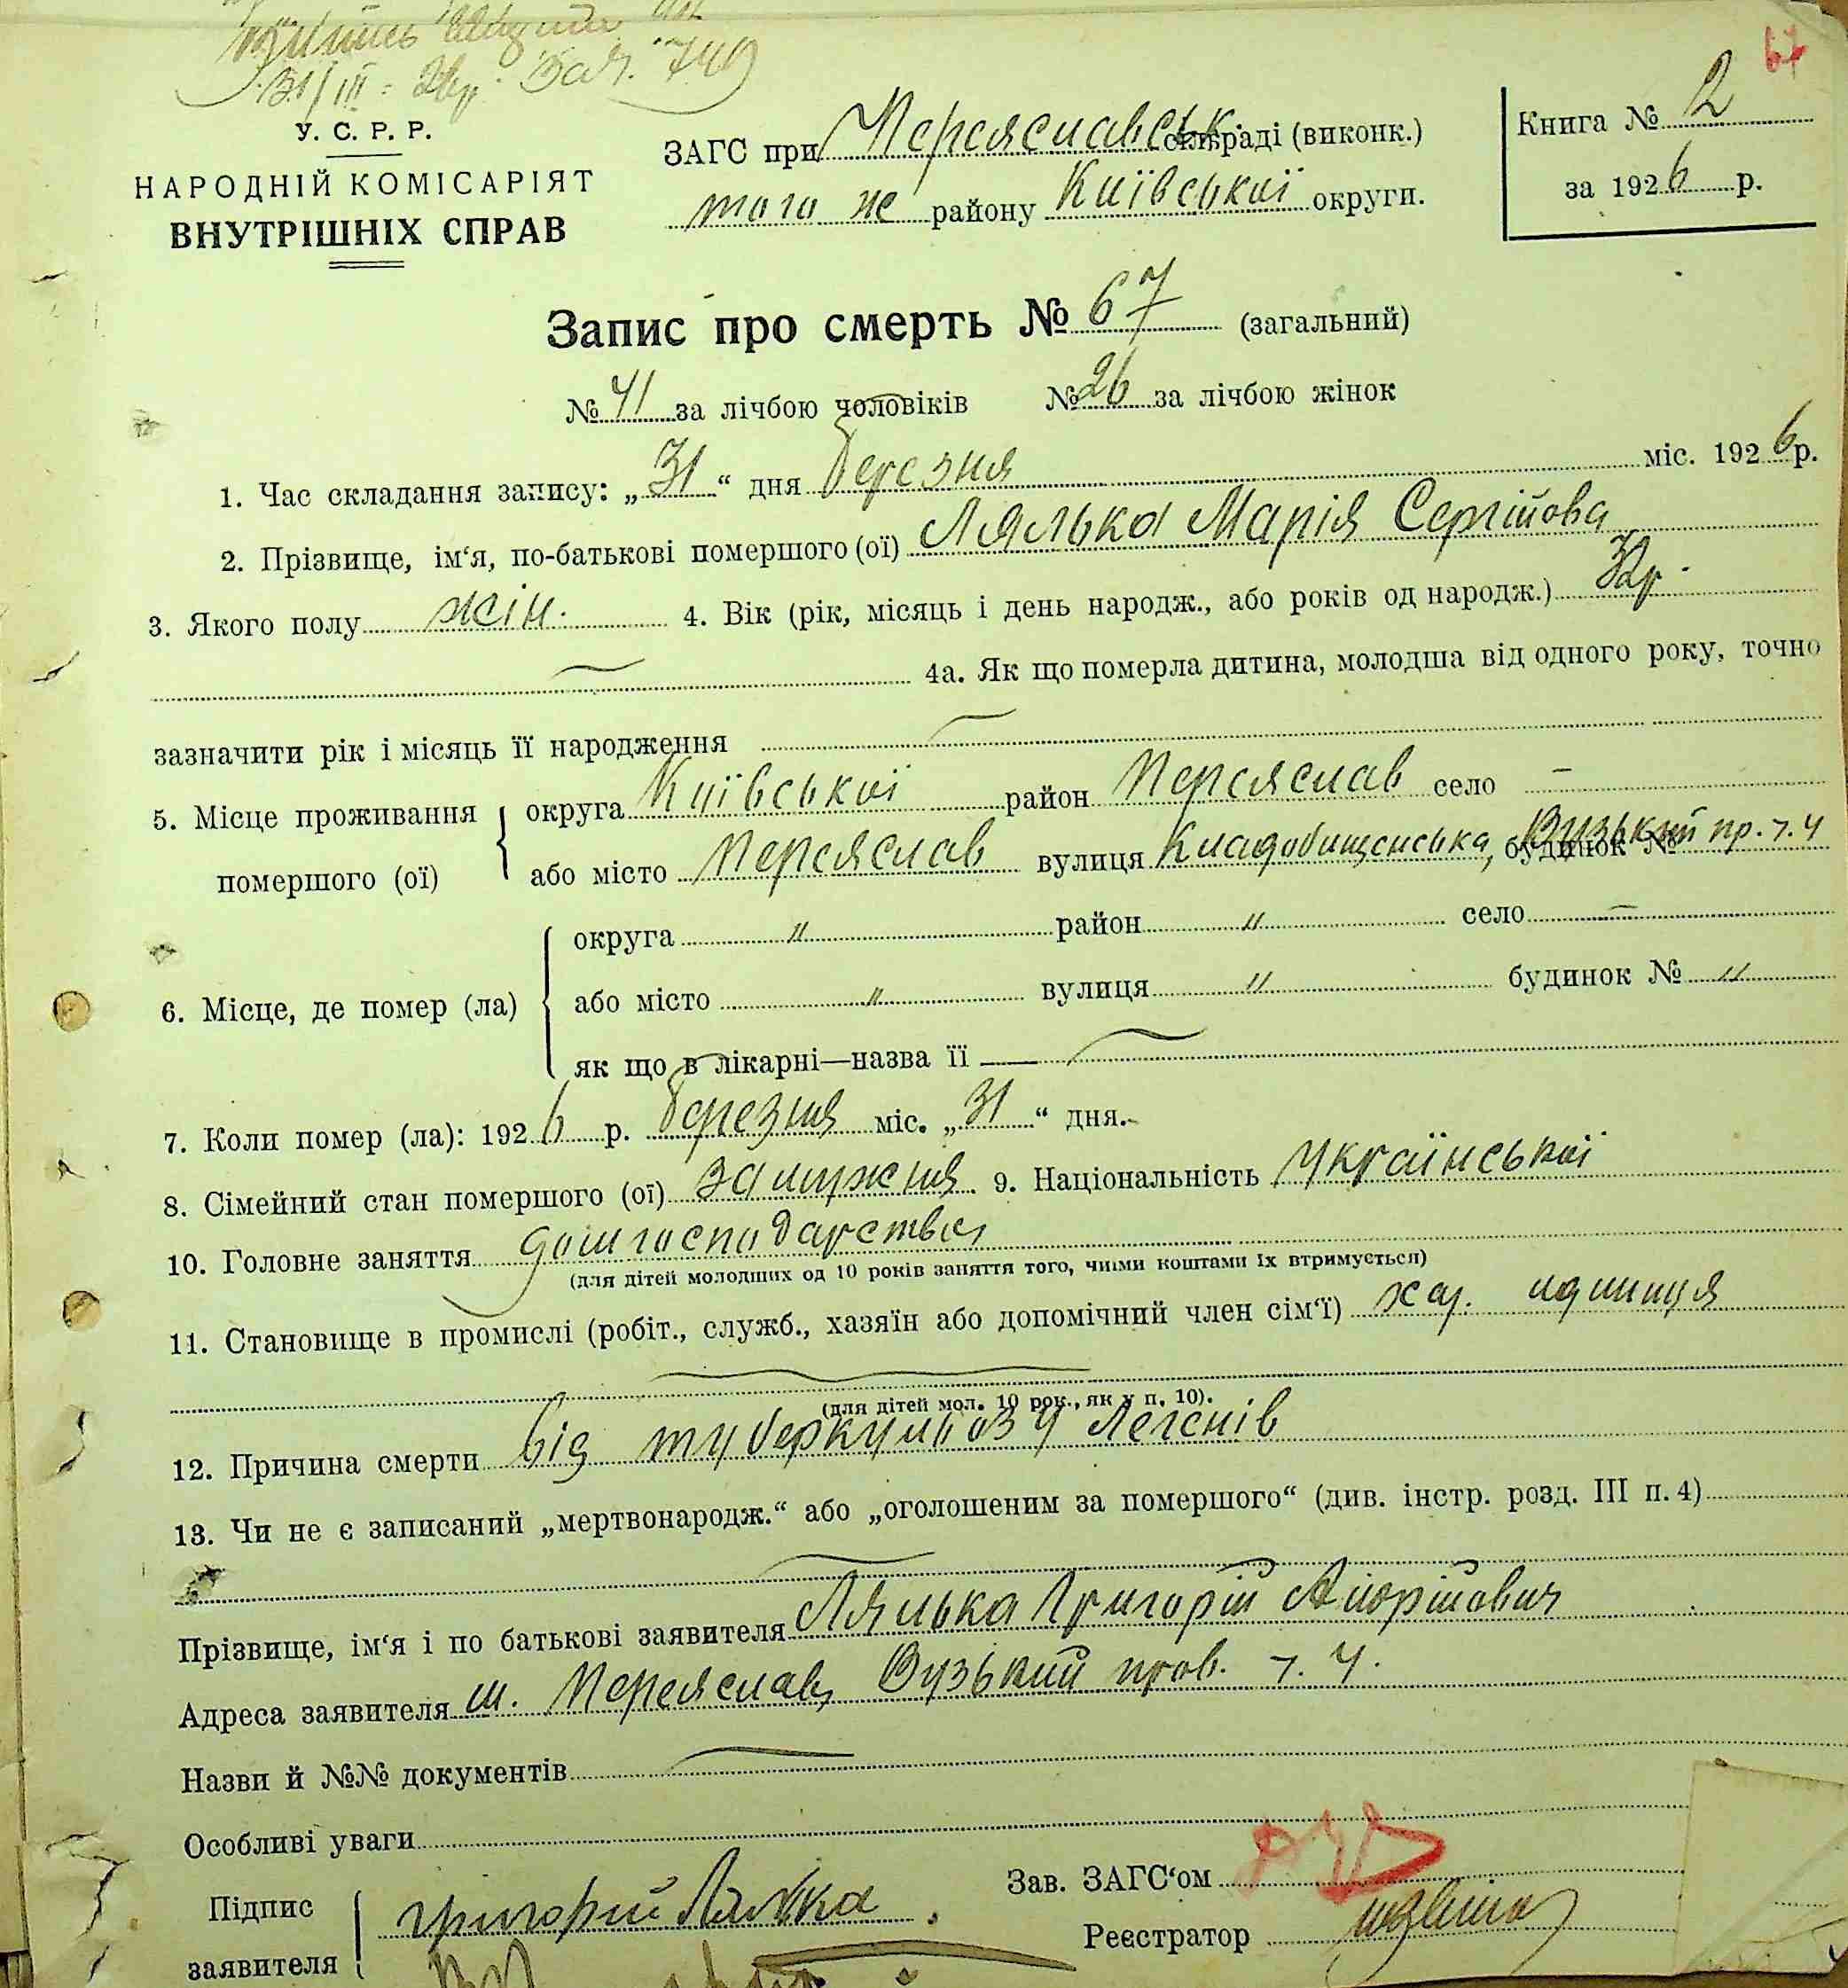 31/III - 26р. 749
67
У. С. Р. Р.
НАРОДНІЙ КОМІСАРІЯТ
ВНУТРІШНІХ СПРАВ
ЗАГС при Переяславськ. сільраді (виконк.)
того же району Київської округи.
Книга № 2
за 1926 р.
Запис про смерть № 67 (загальний)
№ 41 за лічбою чоловіків № 26 за лічбою жінок
1. Час складання запису: „31“ дня березня міс. 1926 р.
2. Прізвище, ім‘я, по-батькові помершого (ої) Лялька Марія Сергійова
3. Якого полу жін. 4. Вік (рік, місяць і день народж., або років од народж.) 32 р.
4а. Як що померла дитина, молодша від одного року, точно
зазначити рік і місяць її народження
5. Місце проживання помершого (ої) округа Київської район Переяслав село —
або місто Переяслав вулиця Кладобищенська, будинок № Вузький пр. ч. 4
6. Місце, де помер (ла) округа " район " село —
або місто " вулиця " будинок № "
як що в лікарні—назва її
7. Коли помер (ла): 1926 р. березня міс. „31“ дня.
8. Сімейний стан помершого (ої) замужня 9. Національність Української
10. Головне заняття дом господарства
(для дітей молодших од 10 років заняття того, чиїми коштами їх втримується)
11. Становище в промислі (робіт., служб., хазяїн або допомічний член сім‘ї) хаз. одиниця
(для дітей мол. 10 рок., як у п. 10).
12. Причина смерти від туберкульозу Легенів
13. Чи не є записаний „мертвонародж.“ або „оголошеним за помершого“ (див. інстр. розд. III п. 4)
Прізвище, ім‘я і по батькові заявителя Лялька Григорій
Адреса заявителя м. Переяслав, Вузький пров. ч. 4.
Назви й №№ документів
Особливі уваги
Підпис заявителя Григорий Лялька
Зав. ЗАГС‘ом
Реєстратор